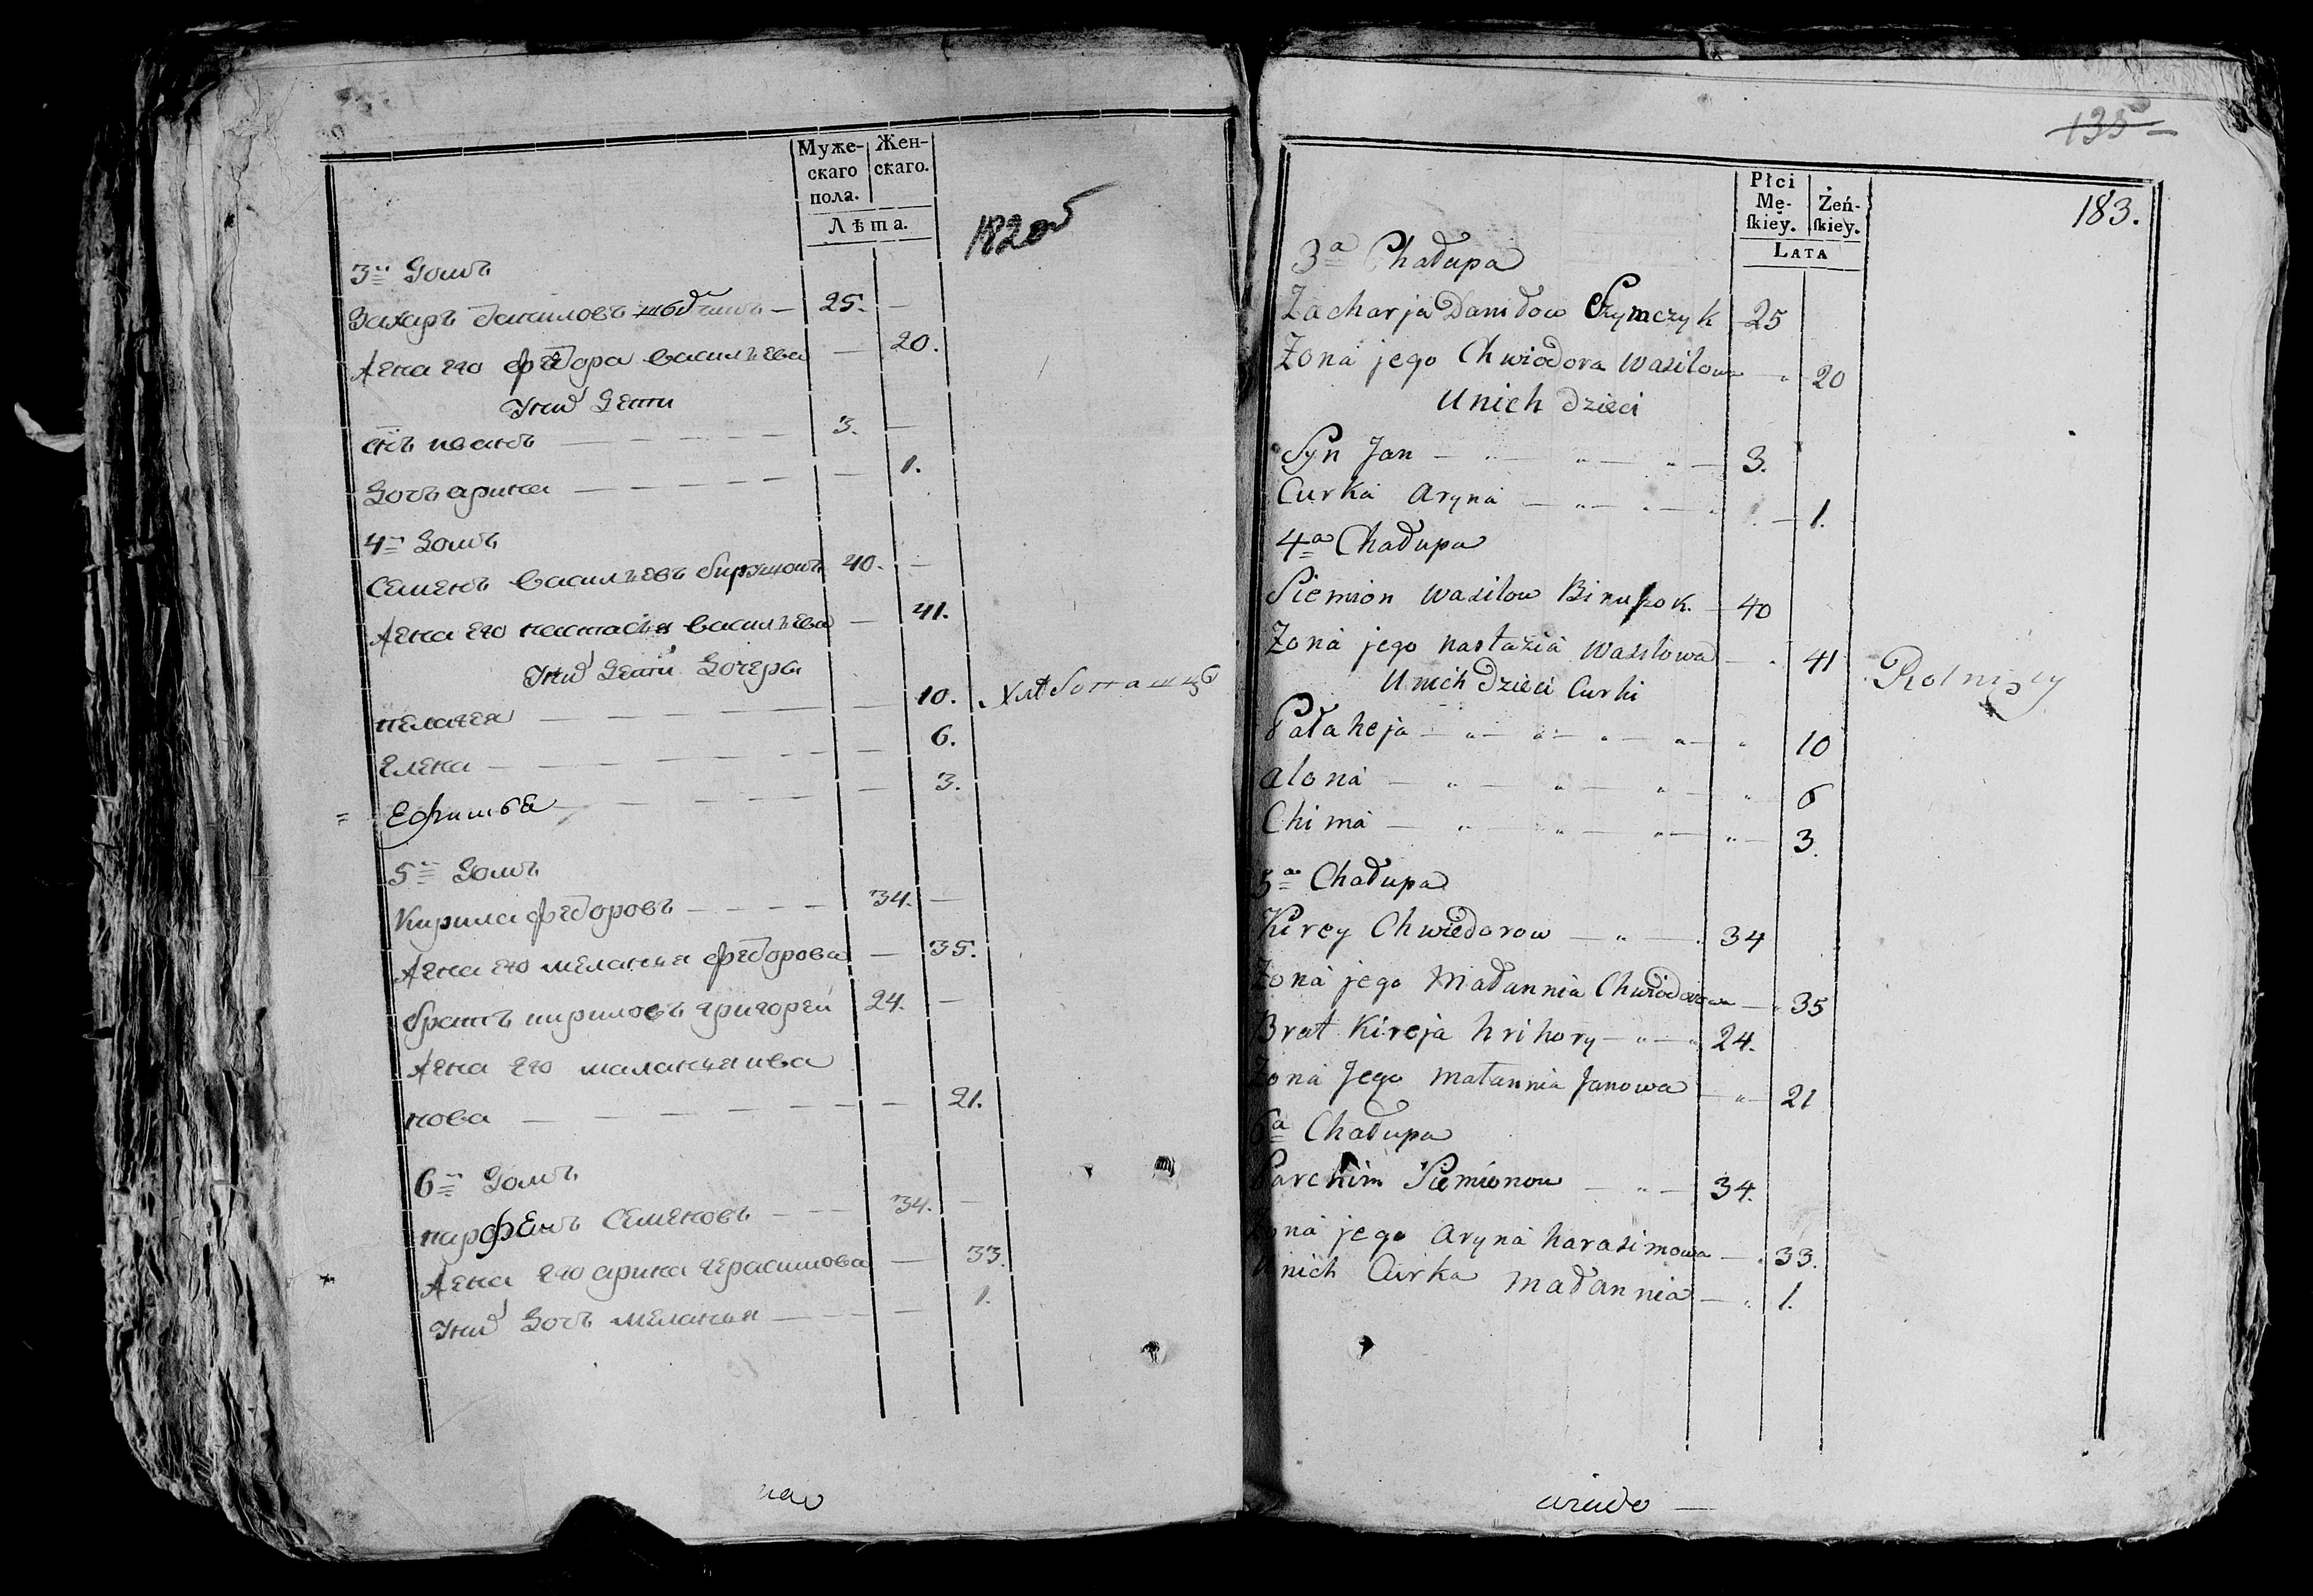 Муже-
скаго
пола.
Жен-
скаго.
Лѣта.
1820
3й домъ
Захаръ даниловъ — 25. —
Жена его федора васильева — 20.
У них дети
сынъ иванъ — 3. —
дочь арина — 1.
4й домъ
Семенъ васильевъ 40. —
Жена его настасья васильева — 41.
У них дети дочеры
пелагея — 10.
елена — 6.
= Ефимья — 3.
5й домъ
Кирила федоровъ — 34. —
Жена его меланья федорова — 35.
братъ кириловъ григорей 24. —
Жена его маланья ива
нова — 21.
6й домъ
парфенъ семеновъ — 34. —
Жена его арина герасимова — 33.
У них дочь меланья — 1.
135
183.
Płci
Mę-
ſkiey.
Żeń-
ſkiey.
LATA
3a Chałupa
Zacharja Daniłow Szymczyk 25
Zona jego Chwiodora Wasilowa 20
U nich dzieci
Syn Jan — 3.
Curka Aryna — 1.
4a Chałupa
Siemion Wasilow 40
Zona jego nastazia Wasilowa — 41
U nich dzieci Curki
Rolnicy
Pałaheja — 10
alona — 6
Chima — 3.
5a Chałupa
Kirey Chwiedorow — 34
Zona jego Małannia Chwiodorowa — 35
Brat Kireja hrihory — 24.
Zona Jego małannia Janowa — 21
6a Chałupa
Parchim Siemionow — 34.
Zona jego Aryna harasimowa — 33.
U nich Curka Małannia — 1.